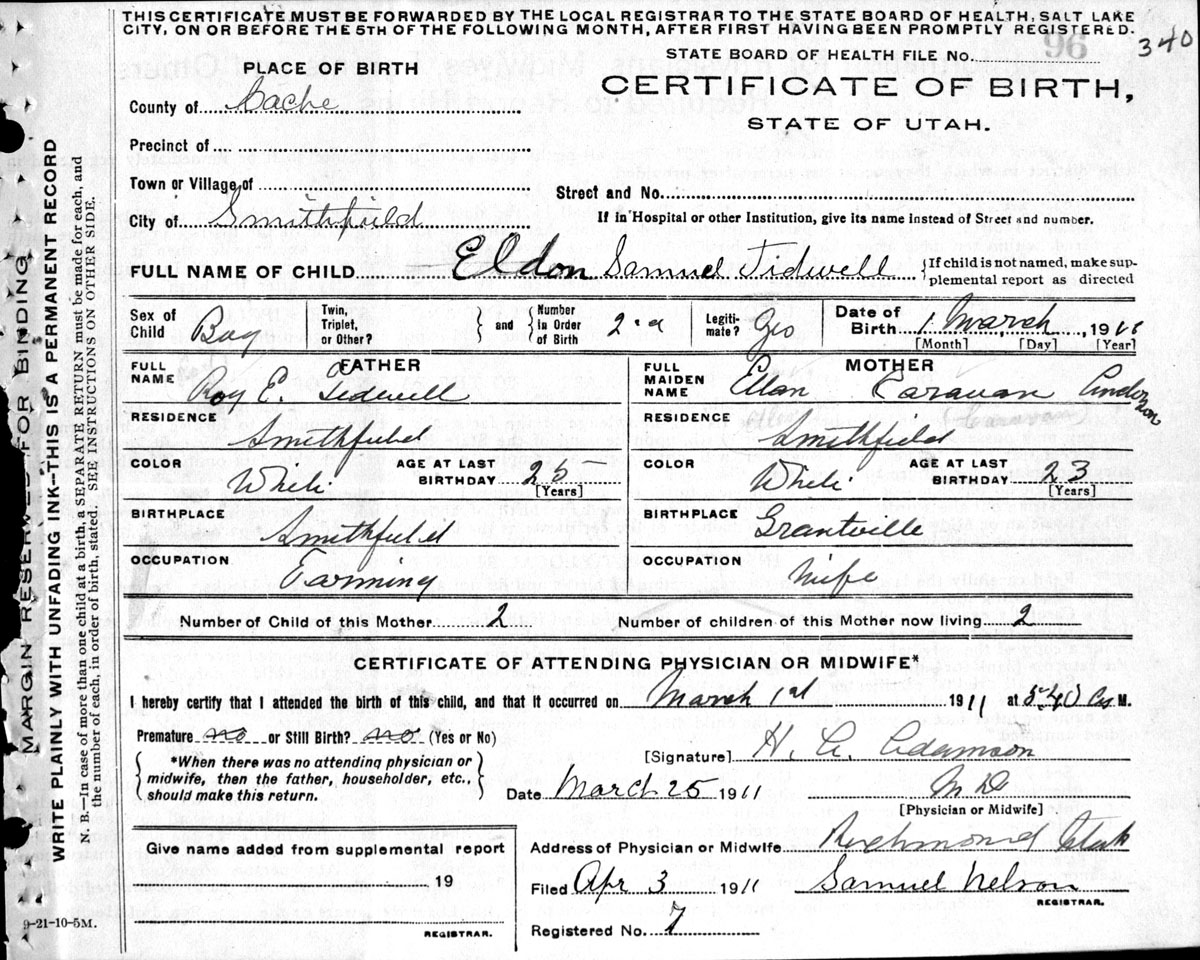 THIS CERTIFICATE MUST BE FORWARDED BY THE LOCAL REGISTRAR TO THE STATE BOARD OF HEALTH, SALT LAKE
CITY, ON OR BEFORE THE 5TH OF THE FOLLOWING MONTH, AFTER FIRST HAVING BEEN PROMPTLY REGISTERED.
STATE BOARD OF HEALTH FILE No. 96 340
PLACE OF BIRTH
CERTIFICATE OF BIRTH,
STATE OF UTAH.
County of Cache
Precinct of
Town or Village of
Street and No.
City of Smithfield
If in Hospital or other Institution, give its name instead of Street and number.
FULL NAME OF CHILD Eldon Samuel Tidwell {If child is not named, make sup-
plemental report as directed
Sex of Child Boy Twin, Triplet, or Other? } and { Number in Order of Birth 2nd Legiti-mate? Yes Date of Birth 1 March, 1911
[Month] [Day] [Year]
FATHER MOTHER
FULL NAME Roy E. Tidwell FULL MAIDEN NAME Ellen Caravan Anderson
(Caravan)
RESIDENCE Smithfield RESIDENCE Smithfield
COLOR White AGE AT LAST BIRTHDAY 25 [Years] COLOR White AGE AT LAST BIRTHDAY 23 [Years]
BIRTHPLACE Smithfield BIRTHPLACE Grantville
OCCUPATION Farming OCCUPATION Wife
Number of Child of this Mother 2 Number of children of this Mother now living 2
CERTIFICATE OF ATTENDING PHYSICIAN OR MIDWIFE*
I hereby certify that I attended the birth of this child, and that it occurred on March 1st 1911 at 5-40 M.
Premature no or Still Birth? no (Yes or No)
*When there was no attending physician or
midwife, then the father, householder, etc.,
should make this return.
[Signature] H. A. Adamson
Date March 25 1911 M D
[Physician or Midwife]
Give name added from supplemental report
19
REGISTRAR.
Address of Physician or Midwife Richmond Utah
Filed Apr 3 1911 Samuel Nelson
REGISTRAR.
Registered No. 7
9-21-10-5M.
MARGIN RESERVED FOR BINDING
WRITE PLAINLY WITH UNFADING INK--THIS IS A PERMANENT RECORD
N. B.—In case of more than one child at a birth, a SEPARATE RETURN must be made for each, and
the number of each, in order of birth, stated. SEE INSTRUCTIONS ON OTHER SIDE.